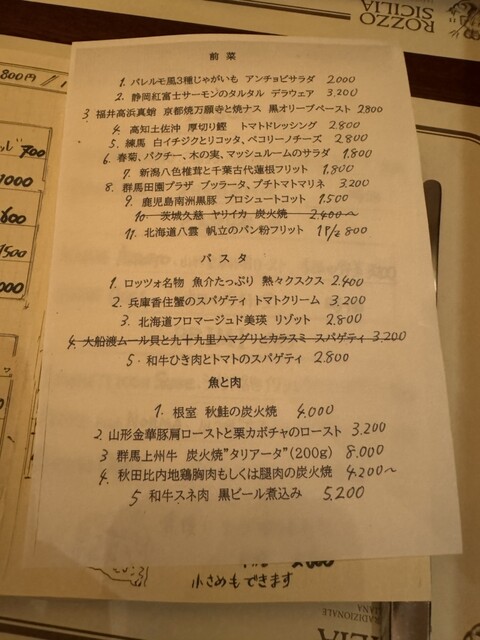 ROZZO
SICILIA
800円
700
1000
500
前菜
1. パレルモ風3種じゃがいも アンチョビサラダ 2000
2. 静岡紅富士サーモンのタルタル デラウェア 3,200
3 福井高浜真蛸 京都焼万願寺と焼ナス 黒オリーブペースト 2800
4. 高知土佐沖 厚切り鰹 トマトドレッシング 2.800
5. 練馬 白イチジクとリコッタ、ペコリーノチーズ 2.800
6. 春菊、パクチー、木の実、マッシュルームのサラダ 1,800
7. 新潟八色椎茸と千葉古代蓮根フリット 1.800
8. 群馬田園プラザ ブッラータ、プチトマトマリネ 3.200
9. 鹿児島南洲黒豚 プロシュートコット 1.500
10. 茨城久慈 ヤリイカ 炭火焼 2.400~
11. 北海道八雲 帆立のパン粉フリット 1P/z 800
パスタ
1. ロッツォ名物 魚介たっぷり 熱々クスクス 2.400
2. 兵庫香住蟹のスパゲティ トマトクリーム 3,200
3. 北海道フロマージュド美瑛 リゾット 2.800
4. 大船渡ムール貝と九十九里ハマグリとカラスミ スパゲティ 3.200
5. 和牛ひき肉とトマトのスパゲティ 2.800
魚と肉
1. 根室 秋鮭の炭火焼 4.000
2. 山形金華豚肩ローストと栗カボチャのロースト 3.200
3 群馬上州牛 炭火焼"タリアータ"(200g) 8.000
4. 秋田比内地鶏胸肉もしくは腿肉の炭火焼 4.200~
5 和牛スネ肉 黒ビール煮込み 5,200
小さめもできます